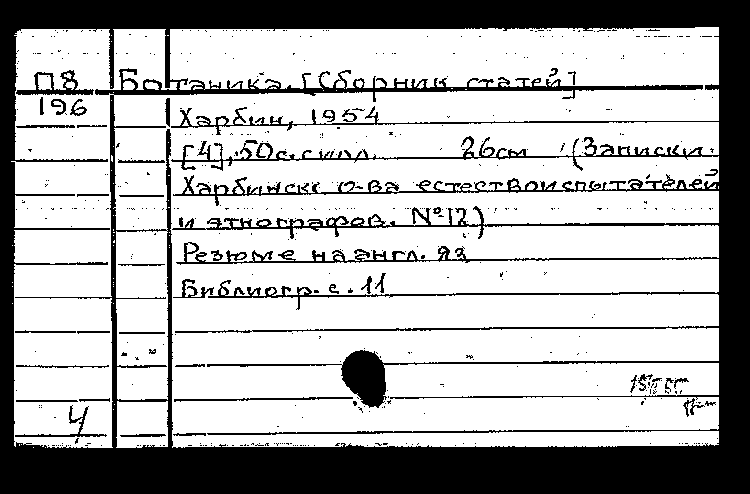 П8 Ботаника. [Сборник статей]
196 Харбин, 1954
[4], 50с. с илл. 26см (Записки
Харбинск. о-ва естествоиспытателей
и этнографов. №12)
Резюме на англ. яз.
Библиогр. с. 11
4